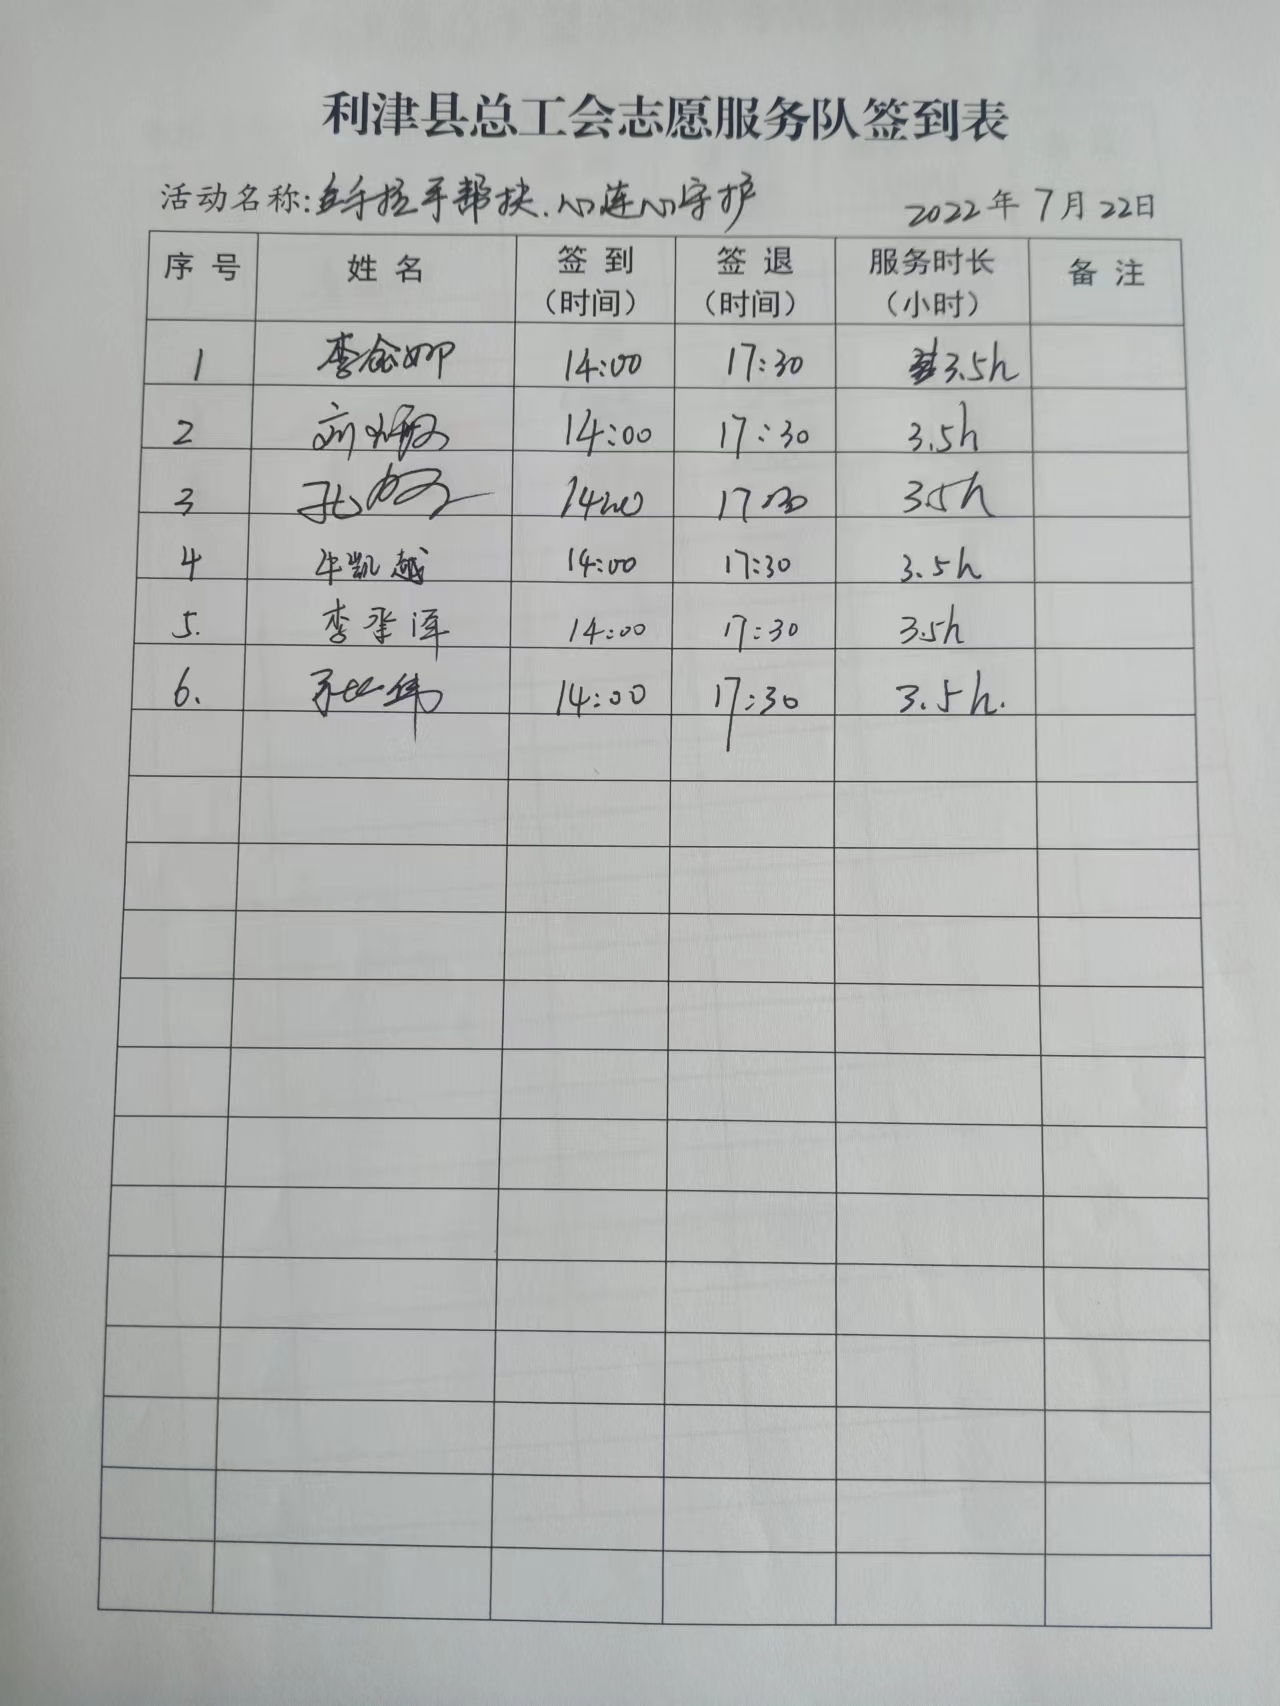 利津县总工会志愿服务队签到表
活动名称:手拉手帮扶.心连心守护 2022年7月22日
序号 姓名 签到(时间) 签退(时间) 服务时长(小时) 备注
1 李念娜 14:00 17:30 3.5h
2 刘 14:00 17:30 3.5h
3 孔 14:00 17:30 3.5h
4 牛凯越 14:00 17:30 3.5h
5. 李承泽 14:00 17:30 3.5h
6. 伟 14:00 17:30 3.5h.